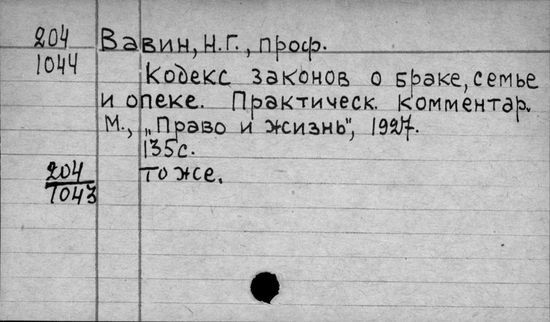 204 Вавин, Н.Г., проф.
1044
Кодекс законов о браке, семье
и опеке. Практическ. комментар.
М., „Право и жизнь", 1927.
135с.
204 То же.
1043